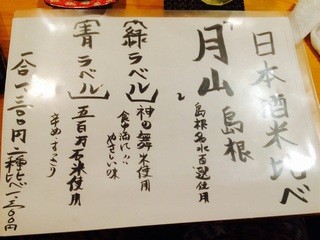 日本酒米比べ
『月山』島根
島根名水百選使用
【緑ラベル】
神の舞米使用
食中酒に!!
やさしい味
【青ラベル】
五百万石米使用
辛めすっきり
一合一、三〇〇円